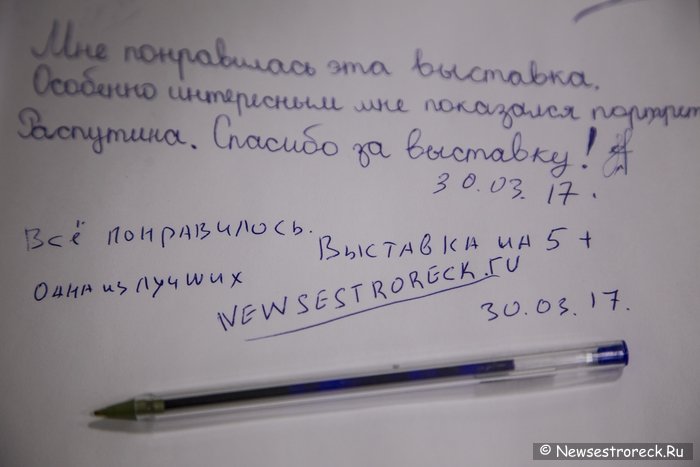 Мне понравилась эта выставка.
Особенно интересным мне показался портрет
Распутина. Спасибо за выставку!
30.03.17.
Всё понравилось.
Выставка на 5+
Одна из лучших
NEWSESTRORECK.RU
30.03.17.
© Newsestroreck.Ru